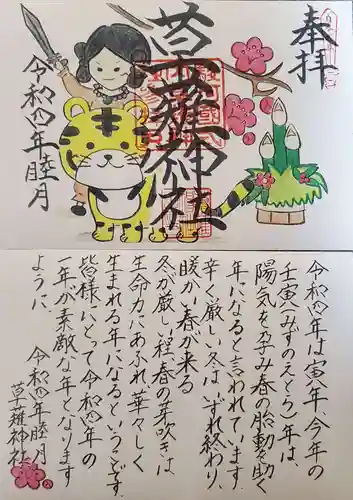 奉拝
草薙神社
令和四年睦月
令和四年は寅年、今年の
壬寅(みずのえとら)年は、
陽気を孕み春の胎動を助く
年になると言われています.
辛く厳しい冬は、いずれ終わり、
暖かい春が来る
冬が厳しい程、春の芽吹きは、
生命力にあふれ華々しく
生まれる年になるということです.
皆様にとって令和四年の
一年が素敵な年となります
ように.
令和四年睦月
草薙神社